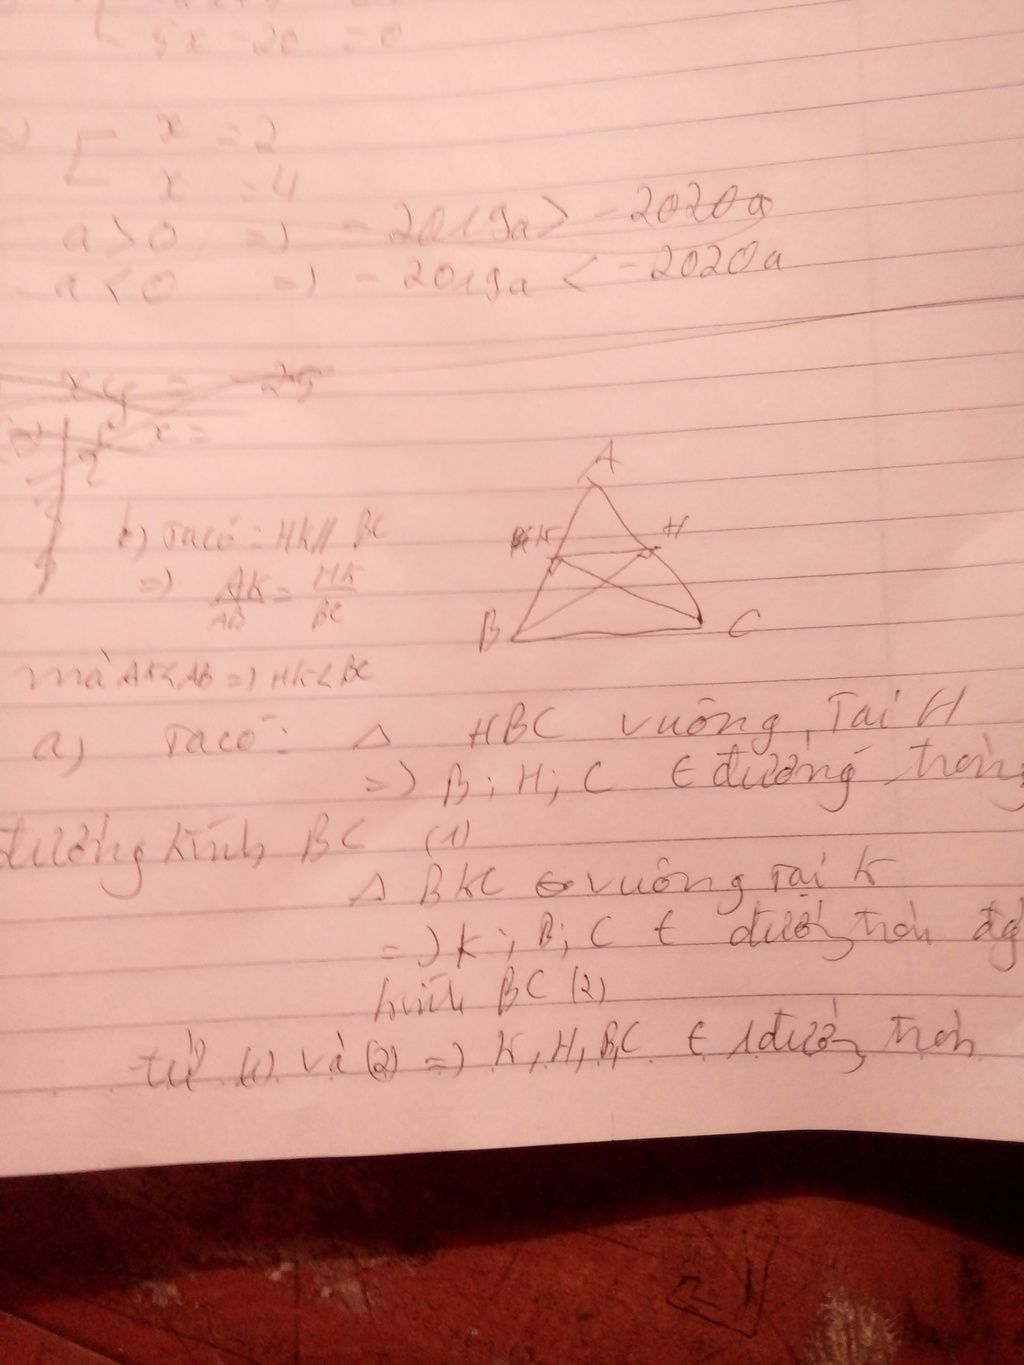 5x - 20 = 0
x = 2
x = 4
a > 0 => - 2019a > - 2020a
a < 0 => - 2019a < - 2020a
xy =
x =
b) Ta có: HK // BC
=> AK/AB = HK/BC
mà AK < AB => HK < BC
A
K H
B C
a) Ta có: Δ HBC vuông tại H
=> B; H; C ∈ đường tròn
đường kính BC (1)
Δ BKC vuông tại K
=> K; B; C ∈ đường tròn đg
kính BC (2)
từ (1) và (2) => K, H, B, C ∈ 1 đường tròn